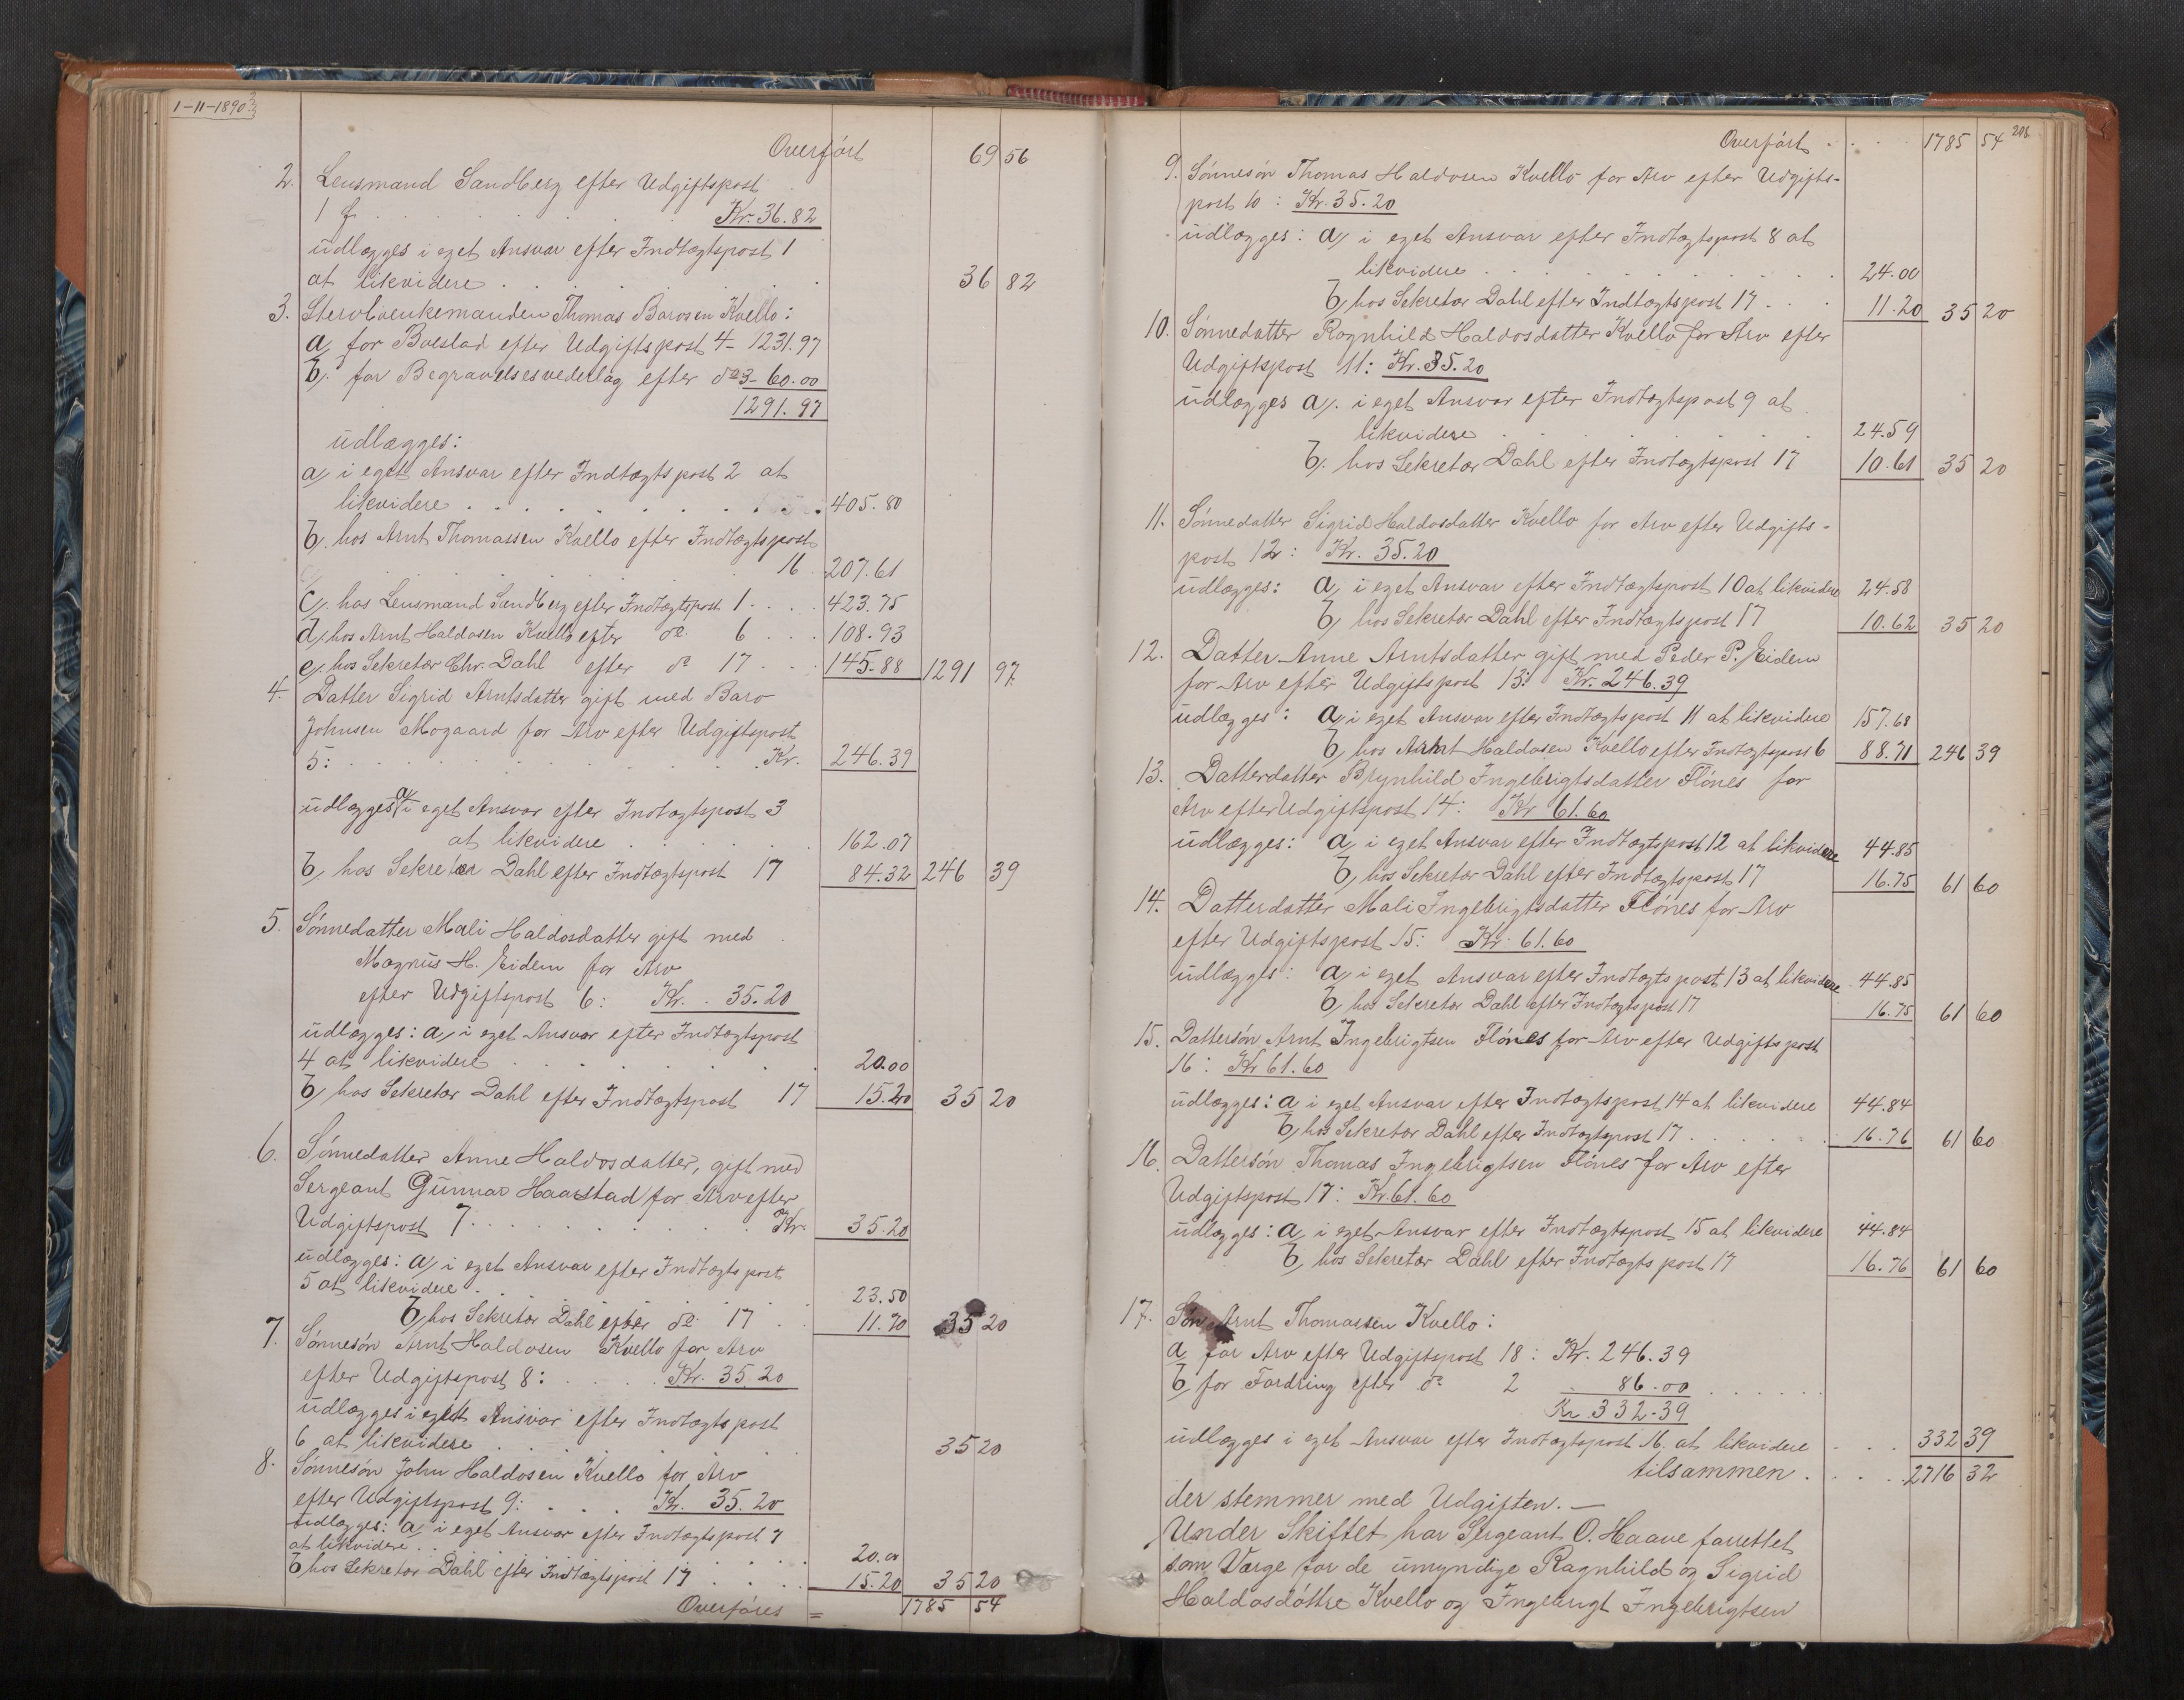 1-11-1890
Overført 69 56
2. Lensmand Sandberg efter Udgiftspost
1 f . . . Kr. 36.82
udlægges i eget Ansvar efter Indtægtspost 1
at likvidere . . . 36 82
3. Stervboenkemanden Thomas Barosen Kvello:
a, for Boeslod efter Udgiftspost 4 - 1231.97
b, for Begravelsesvederlag efter do 3 - 60.00
1291.97
udlægges:
a, i eget Ansvar efter Indtægtspost 2 at
likvidere . . . 405.80
b, hos Arnt Thomassen Kvello efter Indtægtspost
16 207.61
c, hos Lensmand Sandberg efter Indtægtspost 1 . . . 423.75
d, hos Arnt Haldosen Kvello efter do 6 . . . 108.93
e, hos Sekretær Chr. Dahl efter do 17 . . . 145.88 1291 97
4. Datter Sigrid Arntsdatter gift med Baro
Johnsen Mogaard for Arv efter Udgiftspost
5: . . . Kr. 246.39
udlægges a, i eget Ansvar efter Indtægtspost 3
at likvidere . . . 162.07
b, hos Sekretær Dahl efter Indtægtspost 17 84.32 246 39
5. Sønnedatter Mali Haldosdatter gift med
Magnus H. Eidem for Arv
efter Udgiftspost 6: Kr. 35.20
udlægges: a, i eget Ansvar efter Indtægtspost
4 at likvidere . . . 20.00
b, hos Sekretær Dahl efter Indtægtspost 17 15.20 35 20
6. Sønnedatter Anne Haldosdatter, gift med
Sergeant Gunnar Haarstad for Arv efter
Udgiftspost 7 . . . Kr. 35.20
udlægges: a, i eget Ansvar efter Indtægtspost
5 at likvidere . . . 23.50
b, hos Sekretær Dahl efter do 17 . . 11.70 35 20
7. Sønnesøn Arnt Haldosen Kvello for Arv
efter Udgiftspost 8: . . . Kr. 35.20
udlægges i eget Ansvar efter Indtægtspost
6 at likvidere . . . 35 20
8. Sønnesøn John Haldosen Kvello for Arv
efter Udgiftspost 9: . . . Kr. 35.20
udlægges: a, i eget Ansvar efter Indtægtspost 7
at likvidere . . . 20.00
b, hos Sekretær Dahl efter Indtægtspost 17 . . . 15.20 35 20
Overføres = 1785 54
206
Overført . . . 1785 54
9. Sønnesøn Thomas Haldosen Kvello for Arv efter Udgifts-
post 10: Kr. 35.20
udlægges: a, i eget Ansvar efter Indtægtspost 8 at
likvidere . . . 24.00
b, hos Sekretær Dahl efter Indtægtspost 17 . . . 11.20 35 20
10. Sønnedatter Ragnhild Haldosdatter Kvello for Arv efter
Udgiftspost 11: Kr. 35.20
udlægges a, i eget Ansvar efter Indtægtspost 9 at
likvidere . . . 24.59
b, hos Sekretær Dahl efter Indtægtspost 17 10.61 35 20
11. Sønnedatter Sigrid Haldosdatter Kvello for Arv efter Udgifts-
post 12: Kr. 35.20
udlægges: a, i eget Ansvar efter Indtægtspost 10 at likvidere 24.58
b, hos Sekretær Dahl efter Indtægtspost 17 10.62 35 20
12. Datter Anne Arntsdatter gift med Peder P. Eidem
for Arv efter Udgiftspost 13: Kr. 246.39
udlægges: a, i eget Ansvar efter Indtægtspost 11 at likvidere 157.68
b, hos Arnt Haldosen Kvello efter Indtægtspost 6 88.71 246 39
13. Datterdatter Brynhild Ingebrigtsdatter Flønes for
Arv efter Udgiftspost 14: Kr 61.60
udlægges: a, i eget Ansvar efter Indtægtspost 12 at likvidere 44.85
b, hos Sekretær Dahl efter Indtægtspost 17 16.75 61 60
14. Datterdatter Mali Ingebrigtsdatter Flønes for Arv
efter Udgiftspost 15: Kr. 61.60
udlægges: a, i eget Ansvar efter Indtægtspost 13 at likvidere 44.85
b, hos Sekretær Dahl efter Indtægtspost 17 16.75 61 60
15. Dattersøn Arnt Ingebrigtsen Flønes for Arv efter Udgiftspost
16: Kr 61.60
udlægges: a, i eget Ansvar efter Indtægtspost 14 at likvidere 44.84
b, hos Sekretær Dahl efter Indtægtspost 17 . . . 16.76 61 60
16. Dattersøn Thomas Ingebrigtsen Flønes for Arv efter
Udgiftspost 17: Kr. 61.60
udlægges: a, i eget Ansvar efter Indtægtspost 15 at likvidere 44.84
b, hos Sekretær Dahl efter Indtægtspost 17 16.76 61 60
17. Søn Arnt Thomassen Kvello:
a, for Arv efter Udgiftspost 18: Kr. 246.39
b, for Fordring efter do 2 86.00 . . .
Kr 332.39
udlægges i eget Ansvar efter Indtægtspost 16 at likvidere . . . 332 39
tilsammen . . . 2716 32
der stemmer med Udgiften. —
Under Skiftet har Sergeant O. Haave forrettet
som Værge for de umyndige Ragnhild og Sigrid
Haldosdøttre Kvello og Ingebrigt Ingebrigtsen